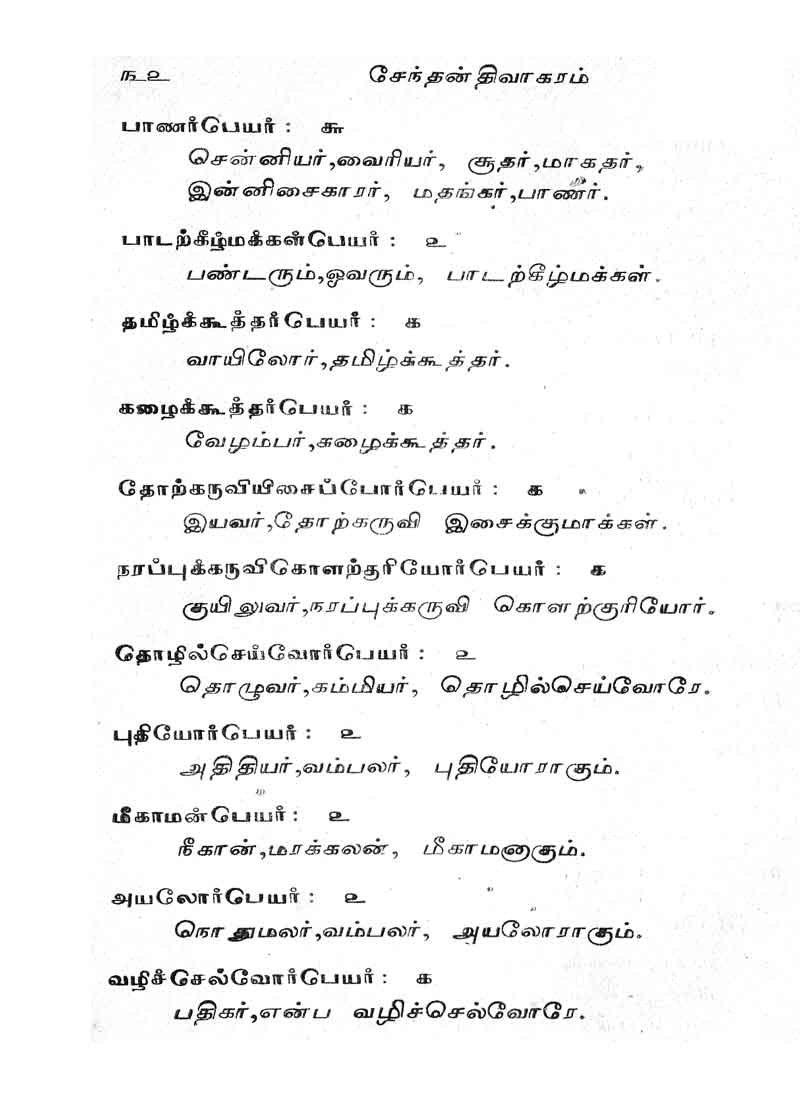 ௩௨ சேந்தன் திவாகரம்
பாணர்பெயர் : ௬
சென்னியர், வைரியர், சூதர், மாகதர்,
இன்னிசைகாரர், மதங்கர், பாணர்.
பாடற்கீழ்மக்கள்பெயர் : ௨
பண்டரும், ஓவரும், பாடற்கீழ்மக்கள்.
தமிழ்க்கூத்தர்பெயர் : ௧
வாயிலோர், தமிழ்க்கூத்தர்.
கழைக்கூத்தர்பெயர் : ௧
வேழம்பர், கழைக்கூத்தர்.
தோற்கருவியிசைப்போர்பெயர் : ௧
இயவர், தோற்கருவி இசைக்குமாக்கள்.
நரப்புக்கருவிகொளற்குரியோர்பெயர் : ௧
குயிலுவர், நரப்புக்கருவி கொளற்குரியோர்.
தொழில்செய்வோர்பெயர் : ௨
தொழுவர், கம்மியர், தொழில்செய்வோரே.
புதியோர்பெயர் : ௨
அதிதியர், வம்பலர், புதியோராகும்.
மீகாமன்பெயர் : ௨
நீகான், மரக்கலன், மீகாமனாகும்.
அயலோர்பெயர் : ௨
நொதுமலர், வம்பலர், அயலோராகும்.
வழிச்செல்வோர்பெயர் : ௧
பதிகர், என்ப வழிச்செல்வோரே.